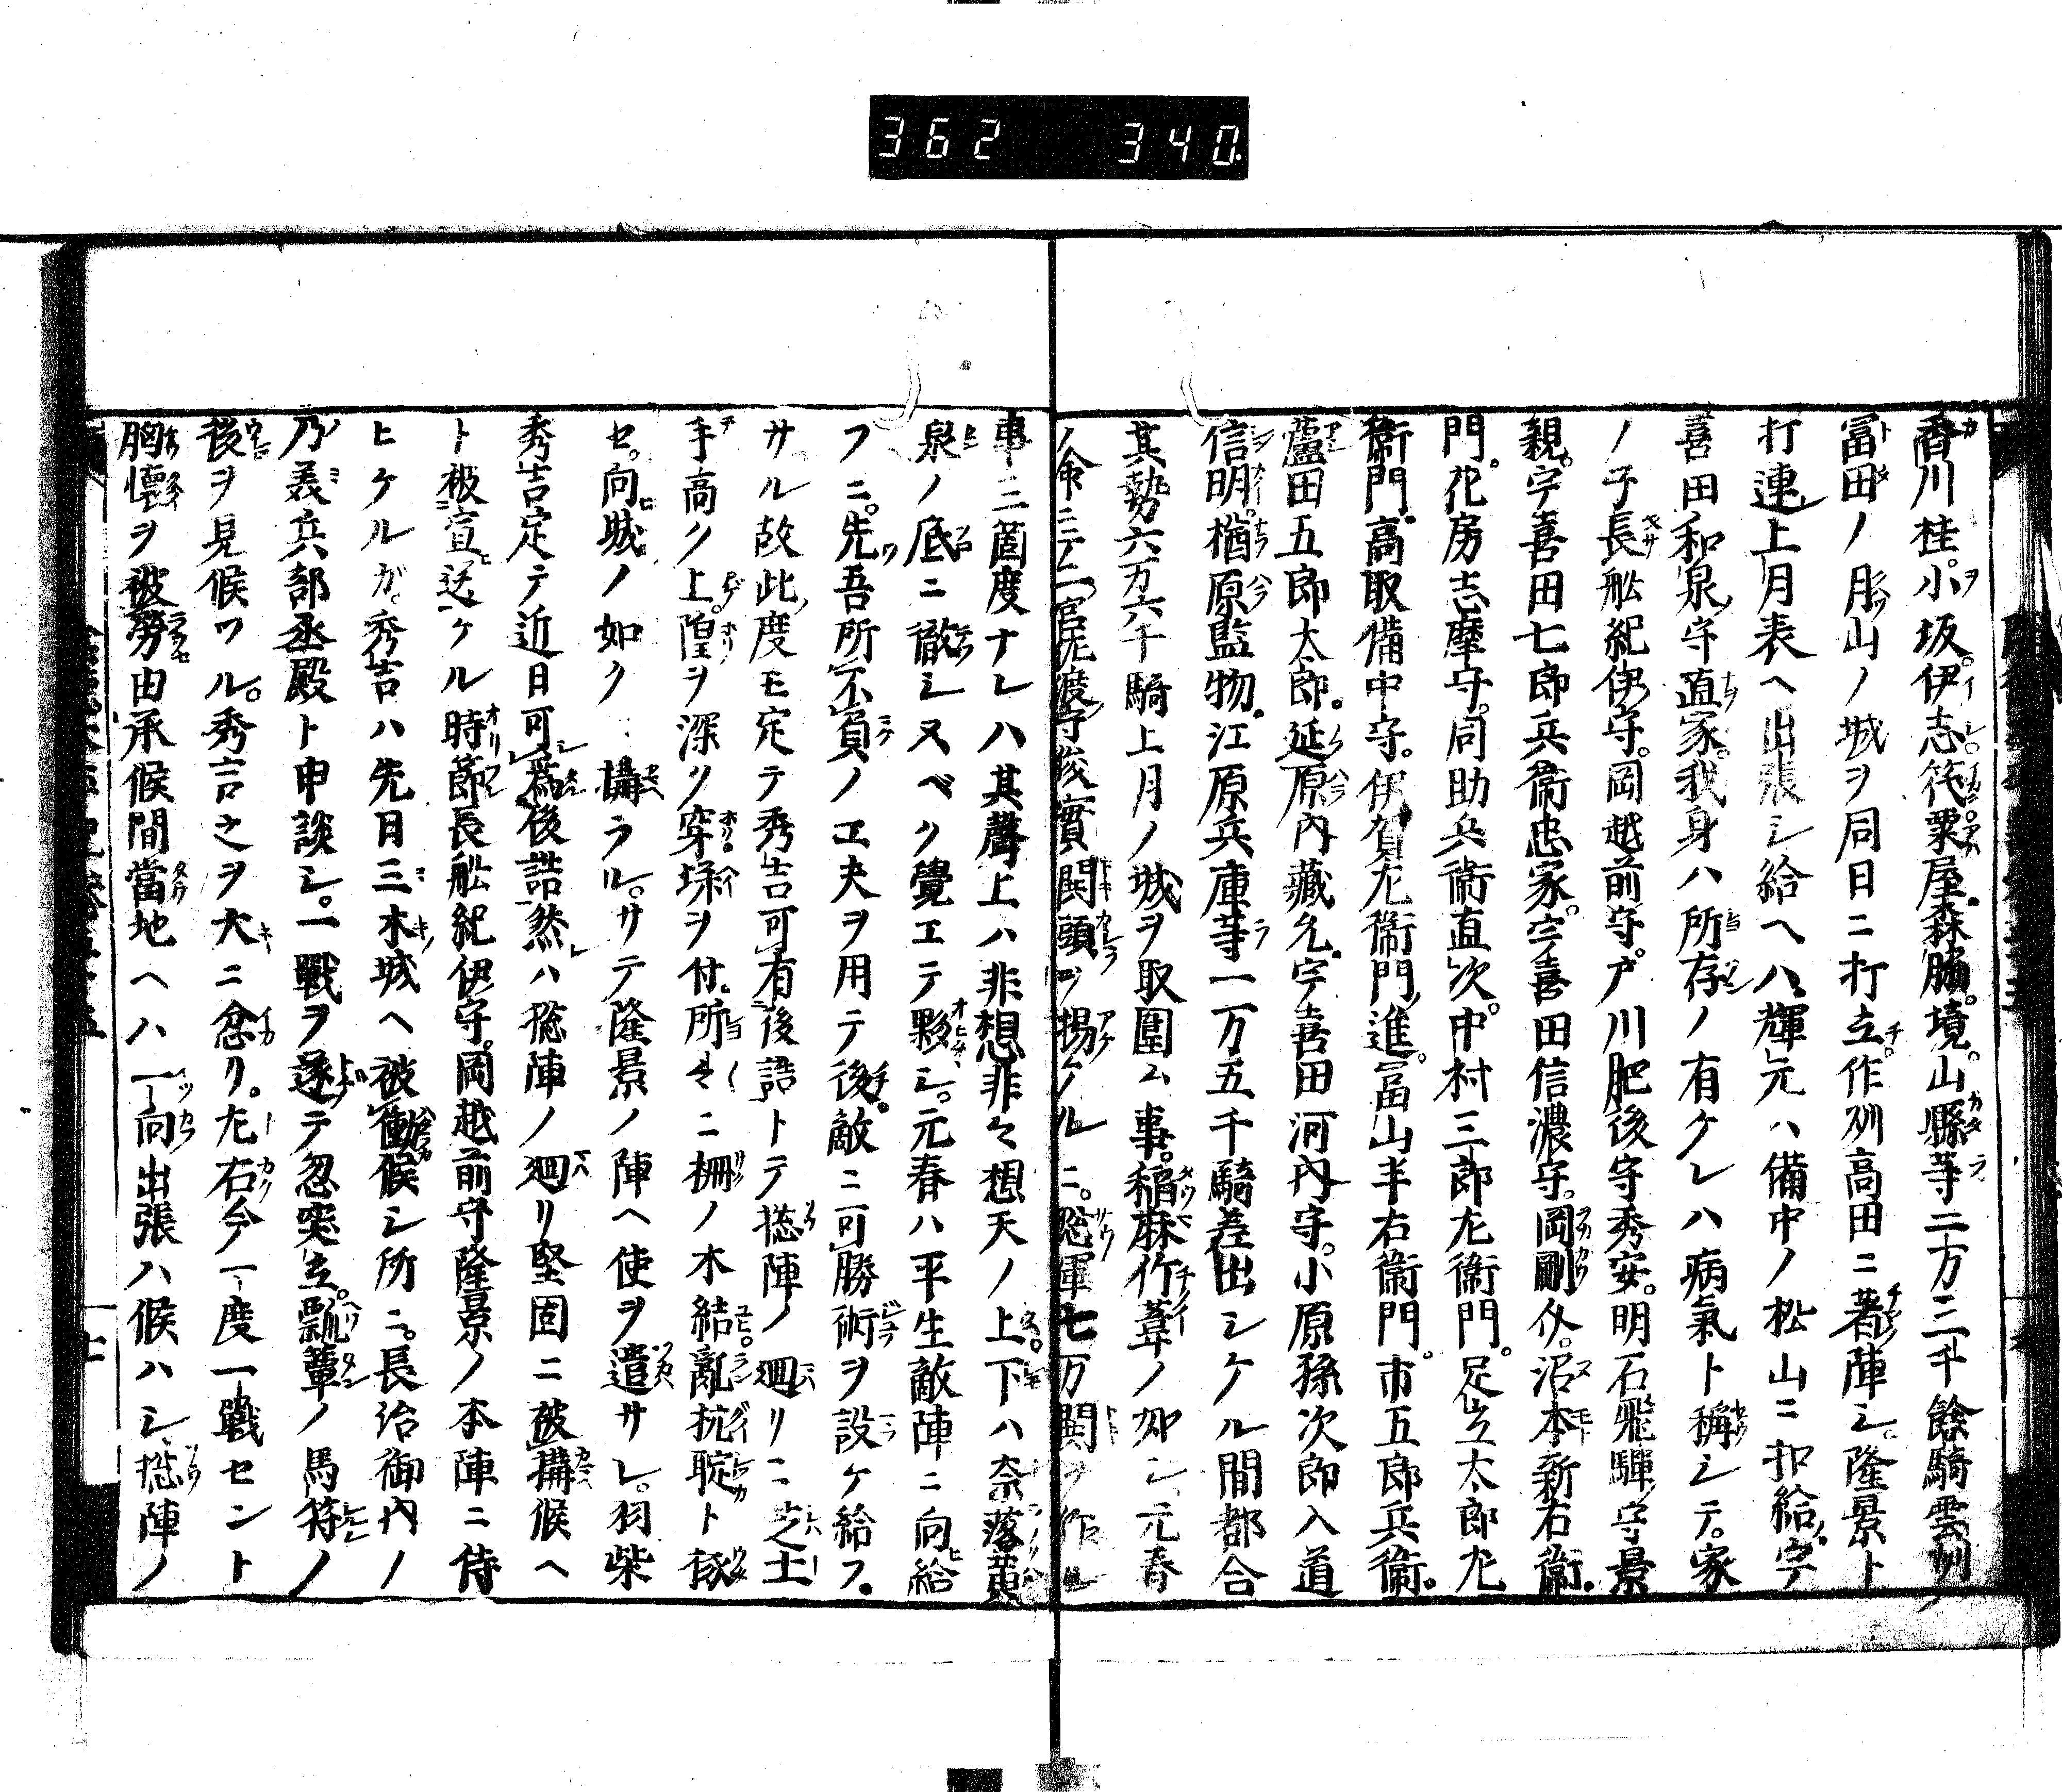 362 340
香川桂。小坂。伊志。筏。粟屋。森脇。境。山縣等二万三千餘騎雲州ノ
冨田ノ月山ノ城ヲ同日ニ打立。作州高田ニ著陣シ。隆景ト
打連上月表ヘ出張シ給ヘハ。輝元ハ備中ノ松山ニ扣給。宇
喜田和泉守直家。我身ハ所存ノ有ケレハ病氣ト稱シテ。家
ノ子長舩紀伊守。岡越前守。戸川肥後守秀安。明石飛騨守景
親。宇喜田七郎兵衞忠家。宇喜田信濃守。岡剛介。沼本新右衞
門。花房志摩守。同助兵衞直次。中村三郎左衞門。足立太郎左
衞門。高取備中守。伊賀左衞門進。冨山半右衞門。市五郎兵衞。
蘆田五郎太郎。延原内藏允。宇喜田河内守。小原孫次郎入道
信明。楢原監物。江原兵庫等一万五千騎差出シケル間都合
其勢六万六千騎上月ノ城ヲ取圍ム事。稲麻竹葦ノ如シ元春
ノ命ニテ二宮佐渡守俊實鬨頭ヲ揚ケルニ。惣軍七万鬨ヲ作ル
事三箇度ナレハ其聲上ハ非想非々想天ノ上。下ハ奈落黄
泉ノ底ニ徹シヌベク覺エテ夥シ。元春ハ平生敵陣ニ向給
フニ。先吾所不負ノ工夫ヲ用テ後。敵ニ可勝術ヲ設ケ給フ。
サル故此度モ定テ秀吉可有後詰トテ惣陣ノ廻リニ芝土
手高ク上。隍ヲ深ク穿塀ヲ付。所々ニ柵ノ木結。亂杭聢ト
セ。向城ノ如ク構ラル。サテ隆景ノ陣ヘ使ヲ遣サレ。羽柴
秀吉定テ近日可爲後詰然ハ惣陣ノ廻リ堅固ニ被構候ヘ
ト被宣送ケル時節長舩紀伊守。岡越前守隆景ノ本陣ニ侍
ヒケルガ。秀吉ハ先月三木城ヘ被働候シ所ニ。長治御内ノ
乃美兵部丞殿ト申談シ。一戰ヲ遂テ忽突立。瓢箪ノ馬符ノ
後ヲ見候ワル。秀吉之ヲ大ニ忿リ。左右今一度一戰セント
胸懷ヲ被勞由承候間當地ヘハ一向出張ハ候ハシ。惣陣ノ